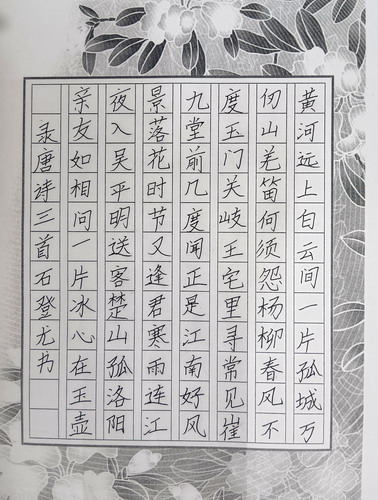 黄河远上白云间一片孤城万
仞山羌笛何须怨杨柳春风不
度玉门关岐王宅里寻常见崔
九堂前几度闻正是江南好风
景落花时节又逢君寒雨连江
夜入吴平明送客楚山孤洛阳
亲友如相问一片冰心在玉壶
录唐诗三首石登尤书